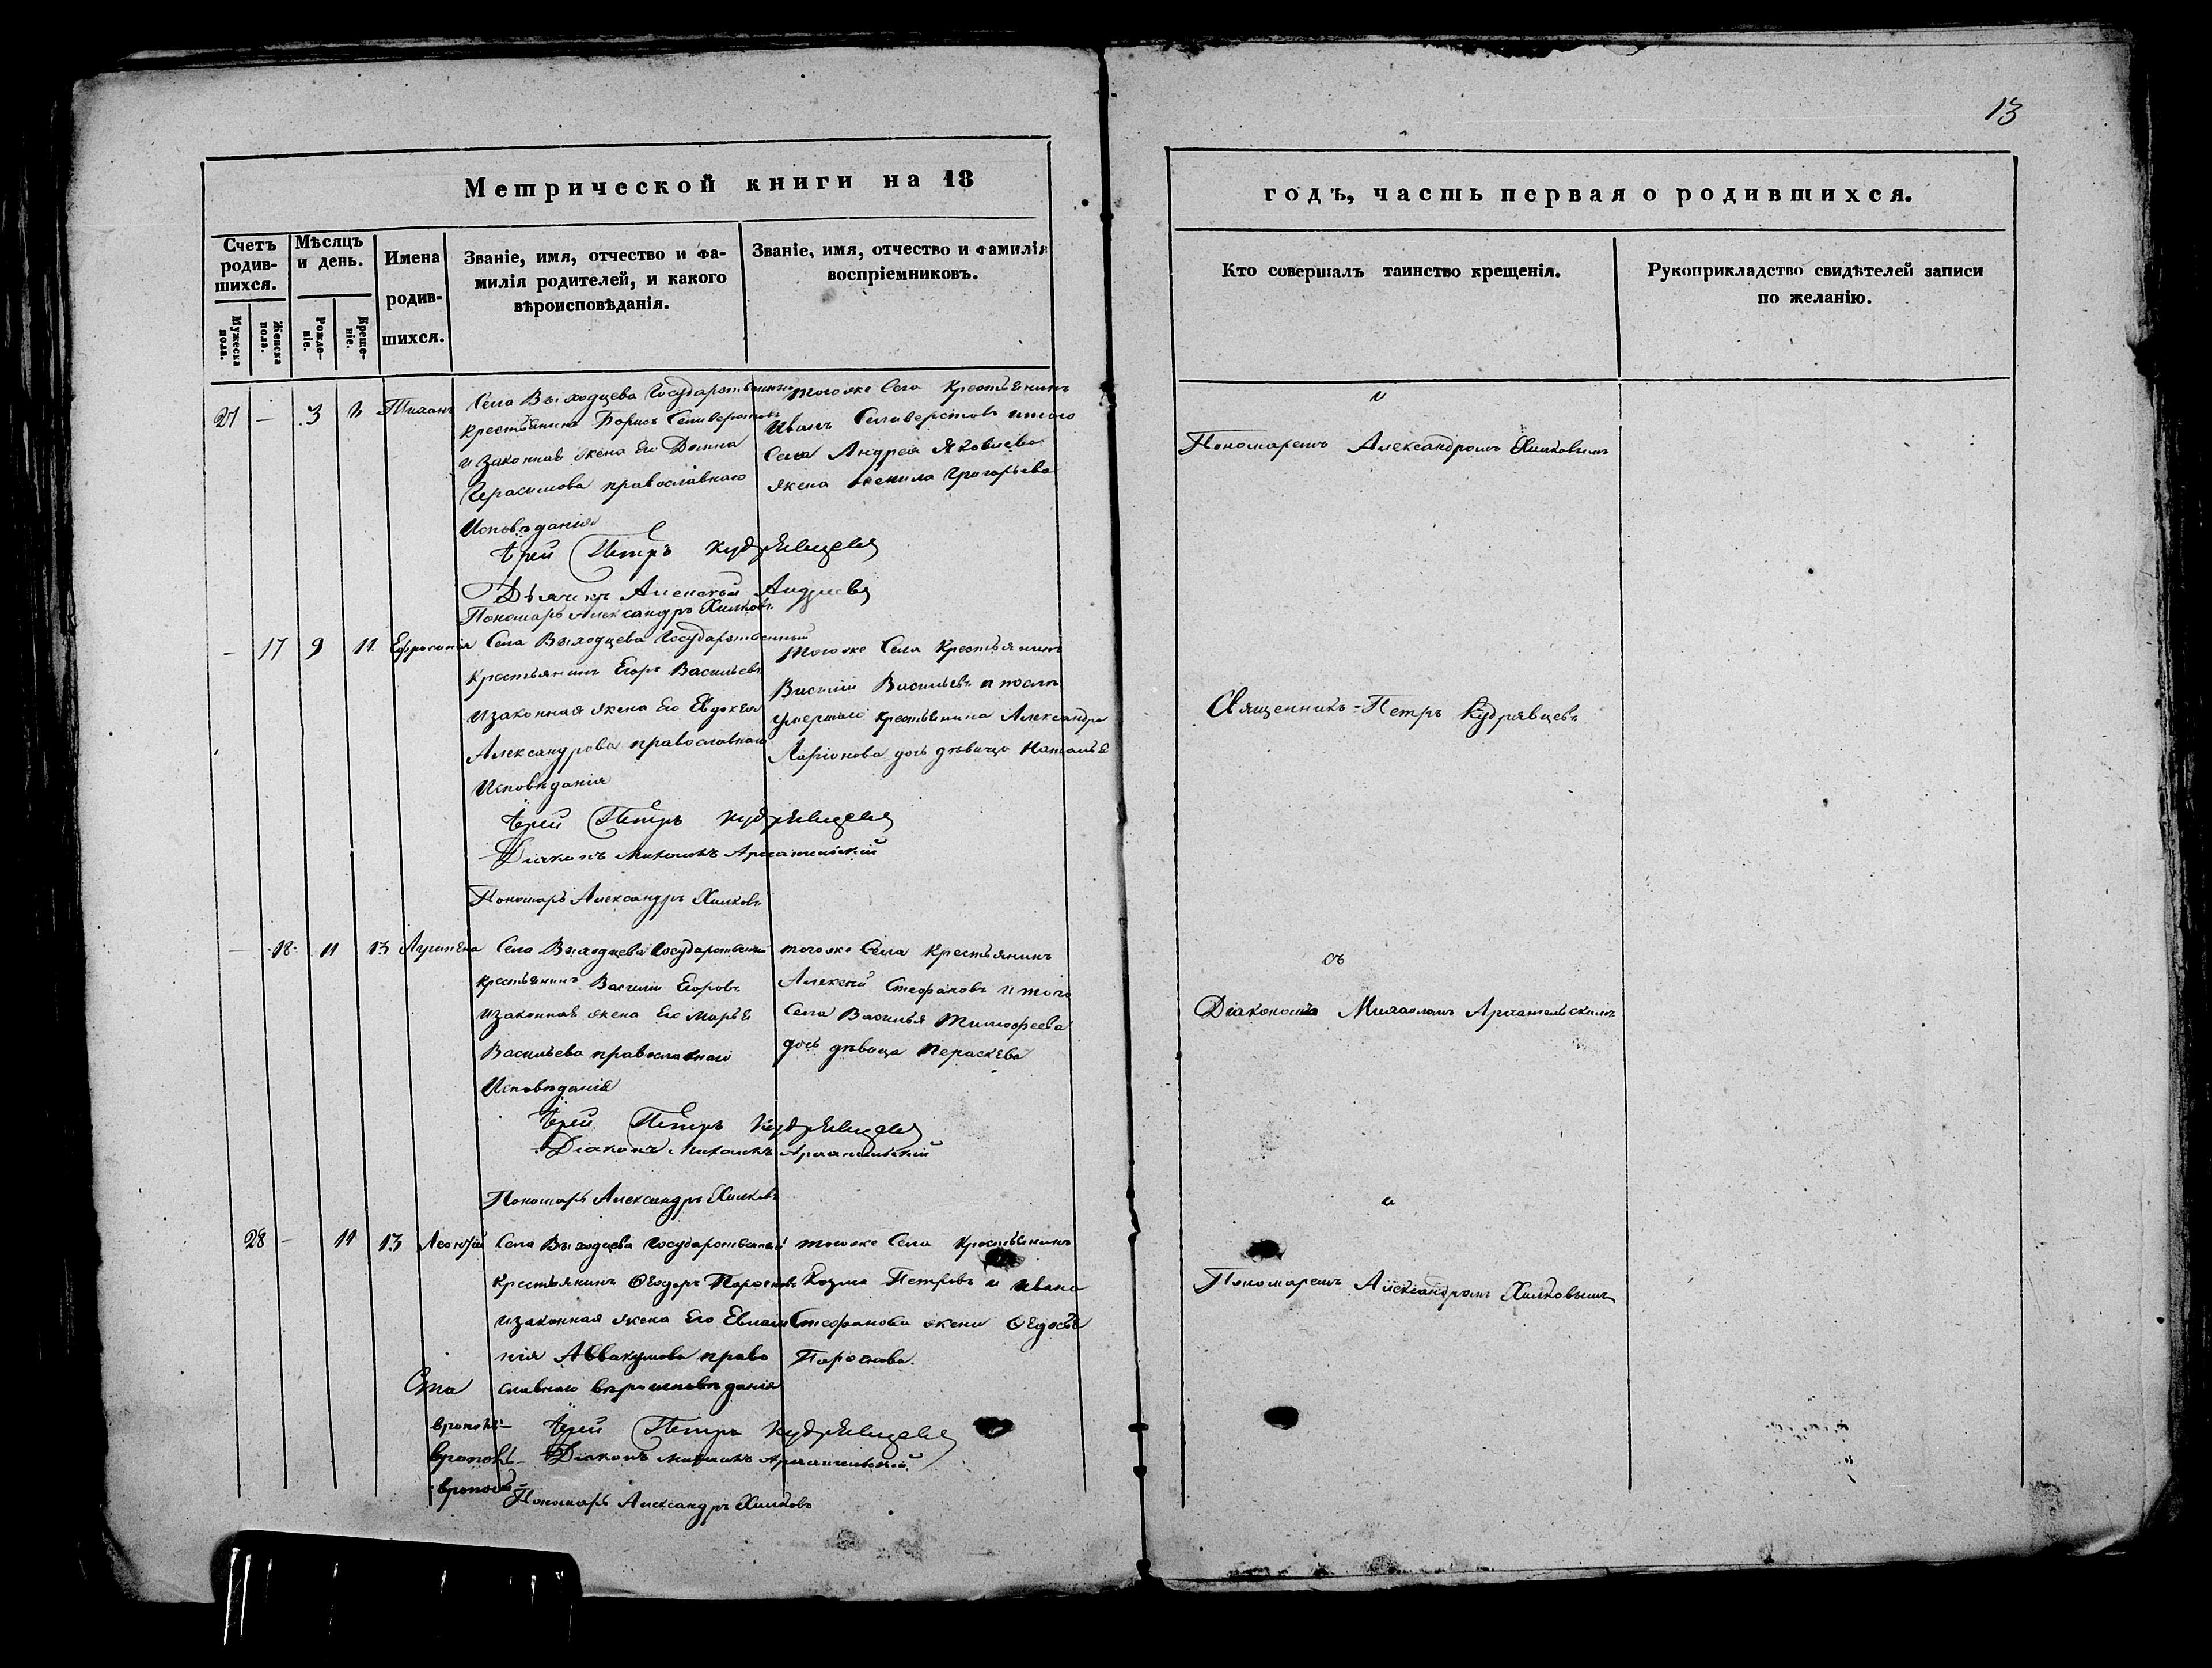 13
Метрической книги на 18
годъ, часть первая о родившихся.
Счетъ родив-шихся.
Мѣсяцъ и день.
Имена родив-шихся.
Званіе, имя, отчество и фа-
милія родителей, и какого
вѣроисповѣданія.
Званіе, имя, отчество и фамилія
воспріемниковъ.
Кто совершалъ таинство крещенія.
Рукоприкладство свидѣтелей записи
по желанію.
Мужеска пола.
Женска пола.
Рожде-ніе.
Креще-ніе.
27 — 3
Села Выходцева Государственный
крестьянинъ Борисъ Селиверстовъ
и законная жена Его Домна
Герасимова православнаго
Исповѣданія
тогоже Села Крестьянинъ
Иванъ Селиверстовъ и того
Села Андрея Яковлева
жена Григорьева
Пономаремъ Александромъ Хилковымъ
Іерей Петръ Кудрявцевъ
Дьячекъ Алексѣй Андреевъ
Пономарь Александръ Хилковъ
— 17 9 11. Ефросинія
Села Выходцева Государственный
Крестьянинъ Егоръ Васильевъ
и законная жена Его Евдокея
Александрова православнаго
Исповѣданія
тогоже Села Крестьянинъ
Василій Васильевъ и
умершаго крестьянина Александра
Ларіонова дочь дѣвица Наталья
Священникъ Петръ Кудрявцевъ
Іерей Петръ Кудрявцевъ
Діаконъ Михаилъ Архангельскій
Пономарь Александръ Хилковъ
— 18 11 13
Села Выходцева Государственный
крестьянинъ Василій Егоровъ
и законная жена Его Марья
Васильева православнаго
Исповѣданія
тогоже Села Крестьянинъ
Алексѣй Стефановъ и того
Села Василья Тимофеева
дочь дѣвица Параскева
Діакономъ Михаиломъ Архангельскимъ
Іерей Петръ Кудрявцевъ
Діаконъ Михаилъ Архангельскій
Пономарь Александръ Хилковъ
28 — 11 13 Леонтій
Села Выходцева Государственный
крестьянинъ Ѳеодоръ
и законная жена Его Евлам
пія Аввакумова право
славнаго вѣроисповѣданія
тогоже Села Крестьянинъ
Козма Петровъ и Ивана
Стефанова жена Ѳедосья
Пономаремъ Александромъ Хилковымъ
Іерей Петръ Кудрявцевъ
Діаконъ Михаилъ Архангельскій
Пономарь Александръ Хилковъ